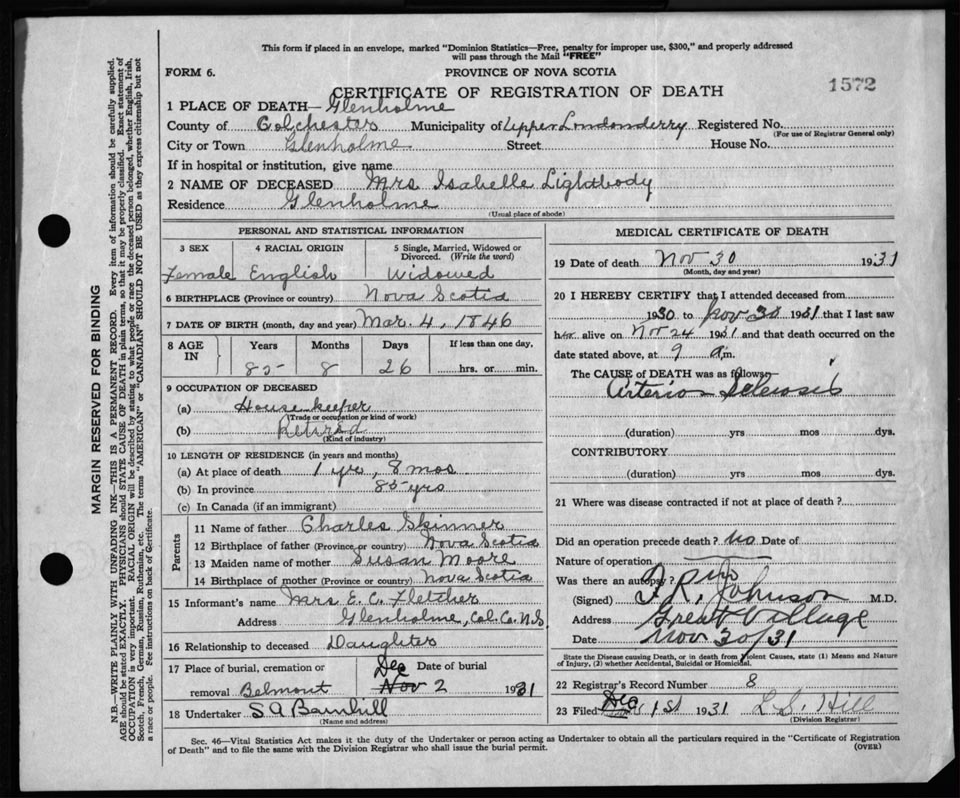 This form if placed in an envelope, marked "Dominion Statistics—Free, penalty for improper use, $300," and properly addressed
will pass through the Mail "FREE"
FORM 6.
PROVINCE OF NOVA SCOTIA
1572
CERTIFICATE OF REGISTRATION OF DEATH
1 PLACE OF DEATH— Glenholme
County of Colchester Municipality of Upper Londonderry Registered No.
(For use of Registrar General only)
City or Town Glenholme Street House No.
If in hospital or institution, give name
2 NAME OF DECEASED Mrs Isabelle Lightbody
Residence Glenholme
(Usual place of abode)
PERSONAL AND STATISTICAL INFORMATION
3 SEX
4 RACIAL ORIGIN
5 Single, Married, Widowed or
Divorced. (Write the word)
Female English Widowed
6 BIRTHPLACE (Province or country) Nova Scotia
7 DATE OF BIRTH (month, day and year) Mar. 4, 1846
8 AGE IN
Years Months Days If less than one day,
85 8 26 hrs. or min.
9 OCCUPATION OF DECEASED
(a) House keeper
(Trade or occupation or kind of work)
(b) Retired
(Kind of industry)
10 LENGTH OF RESIDENCE (in years and months)
(a) At place of death 1 yrs, 8 mos
(b) In province 85 yrs
(c) In Canada (if an immigrant)
Parents
11 Name of father Charles Skinner
12 Birthplace of father (Province or country) Nova Scotia
13 Maiden name of mother Susan Moore
14 Birthplace of mother (Province or country) Nova Scotia
15 Informant's name Mrs E. C. Fletcher
Address Glenholme, Col. Co. N.S.
16 Relationship to deceased Daughter
17 Place of burial, cremation or Dec Date of burial
removal Belmont Nov 2 1931
18 Undertaker S A Barnhill
(Name and address)
MEDICAL CERTIFICATE OF DEATH
19 Date of death Nov 30 1931
(Month, day and year)
20 I HEREBY CERTIFY that I attended deceased from
1930 to Nov 30 1931 that I last saw
her alive on Nov 24 1931 and that death occurred on the
date stated above, at 9 a.m.
The CAUSE of DEATH was as follows:
Arterio Sclerosis
(duration) yrs mos dys.
CONTRIBUTORY
(duration) yrs mos dys.
21 Where was disease contracted if not at place of death?
Did an operation precede death? no Date of
Nature of operation
Was there an autopsy?
(Signed) Johnson M.D.
Address Great Village
Date Nov 30/31
State the Disease causing Death, or in death from Violent Causes, state (1) Means and Nature
of Injury, (2) whether Accidental, Suicidal or Homicidal.
22 Registrar's Record Number 8
23 Filed Dec 1st 1931 L. S. Hill
(Division Registrar)
Sec. 46—Vital Statistics Act makes it the duty of the Undertaker or person acting as Undertaker to obtain all the particulars required in the "Certificate of Registration
of Death" and to file the same with the Division Registrar who shall issue the burial permit.
(OVER)
MARGIN RESERVED FOR BINDING
N.B.—WRITE PLAINLY WITH UNFADING INK—THIS IS A PERMANENT RECORD. Every item of information should be carefully supplied.
AGE should be stated EXACTLY. PHYSICIANS should STATE CAUSE OF DEATH in plain terms, so that it may be properly classified. Exact statement of
OCCUPATION is very important. RACIAL ORIGIN will be described by stating to what people or race the deceased person belonged, whether English, Irish,
Scotch, French, German, Russian, Ruthenian, etc. The terms "AMERICAN" or "CANADIAN" SHOULD NOT BE USED as they express citizenship but not
a race or people. See instructions on back of Certificate.